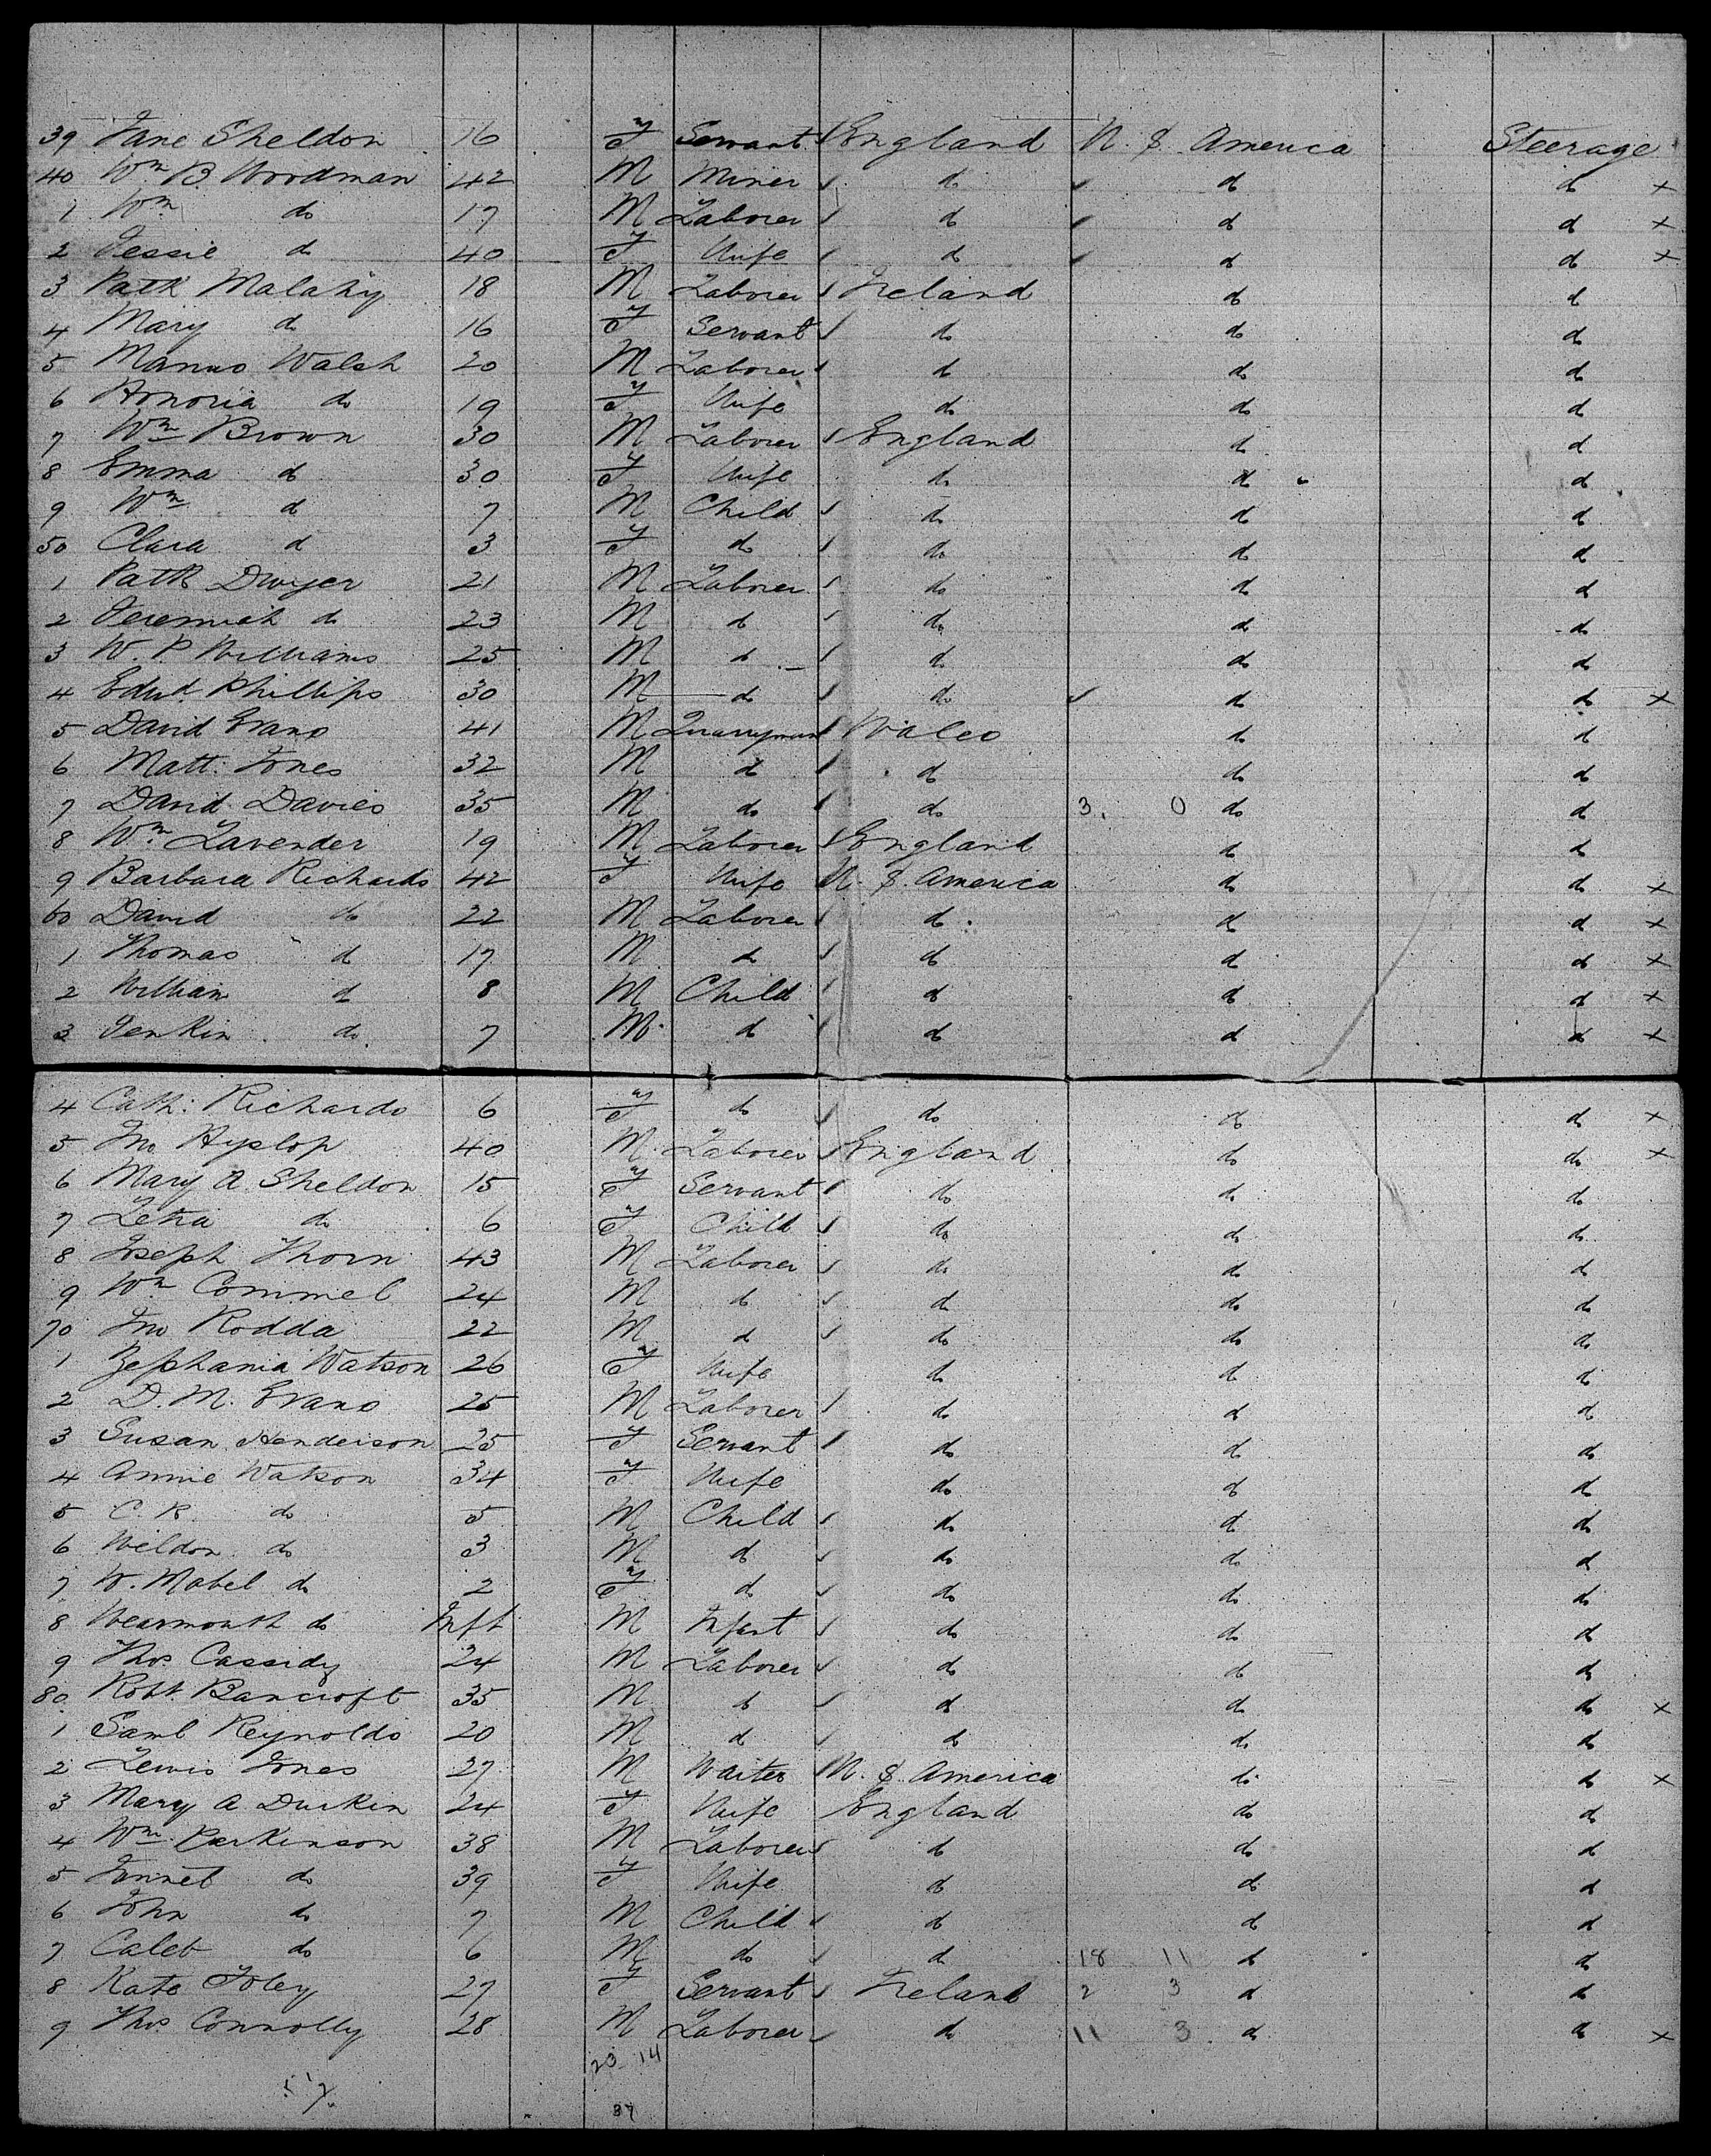 39 Jane Sheldon 16 F Servant England U. S. America Steerage
40 Wm B. Woodman 42 M Miner do do do x
1 Wm do 17 M Laborer do do do x
2 Jessie do 40 F Wife do do do x
3 Patk Malahy 18 M Laborer Ireland do do
4 Mary do 16 F Servant do do do
5 Manus Walsh 20 M Laborer do do do
6 Honoria do 19 F Wife do do do
7 Wm Brown 30 M Laborer England do do
8 Emma do 30 F Wife do do do
9 Wm do 7 M Child do do do
50 Clara do 3 F do do do do
1 Patk Dwyer 21 M Laborer do do do
2 Jeremiah do 23 M do do do do
3 W. P. Williams 25 M do do do do
4 Edwd. Phillips 30 M do do do do x
5 David Evans 41 M Quarryman Wales do do
6 Matt. Jones 32 M do do do do
7 David Davies 35 M do do 3. 0 do do
8 Wm Lavender 19 M Laborer England do do
9 Barbara Richards 42 F Wife U. S. America do do x
60 David do 22 M Laborer do do do x
1 Thomas do 17 M do do do do x
2 William do 8 M Child do do do x
3 Jenkin do 7 M do do do do x
4 Cath: Richards 6 F do do do do x
5 Jno Hyslop 40 M Laborer England do do x
6 Mary A. Sheldon 15 F Servant do do do
7 Letia do 6 F Child do do do
8 Joseph Thorn 43 M Laborer do do do
9 Wm Commel 24 M do do do do
70 Jno Rodda 22 M do do do do
1 Zephania Watson 26 F Wife do do do
2 D. M. Evans 25 M Laborer do do do
3 Susan Henderson 25 F Servant do do do
4 Annie Watson 34 F Wife do do do
5 C. R. do 5 M Child do do do
6 Weldon do 3 M do do do do
7 W. Mabel do 2 F do do do do
8 Wearmouth do Inft M Infant do do do
9 Thos. Cassidy 24 M Laborer do do do
80 Robt. Bancroft 35 M do do do do x
1 Saml Reynolds 20 M do do do do
2 Lewis Jones 27 M Waiter U. S. America do do x
3 Mary A Durkin 24 F Wife England do do
4 Wm. Parkinson 38 M Laborer do do do
5 do 39 F Wife do do do
6 John do 7 M Child do do do
7 Caleb do 6 M do do 18 11 do do
8 Kate Foley 27 F Servant Ireland 2 3 do do
9 Thos Connolly 28 M Laborer do 11 3 do do x
23 14
37